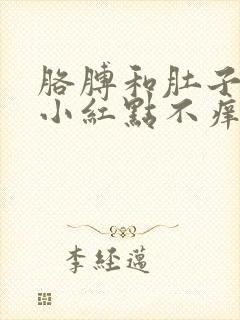 胳膊和肚子
小紅點不痒
李經邁